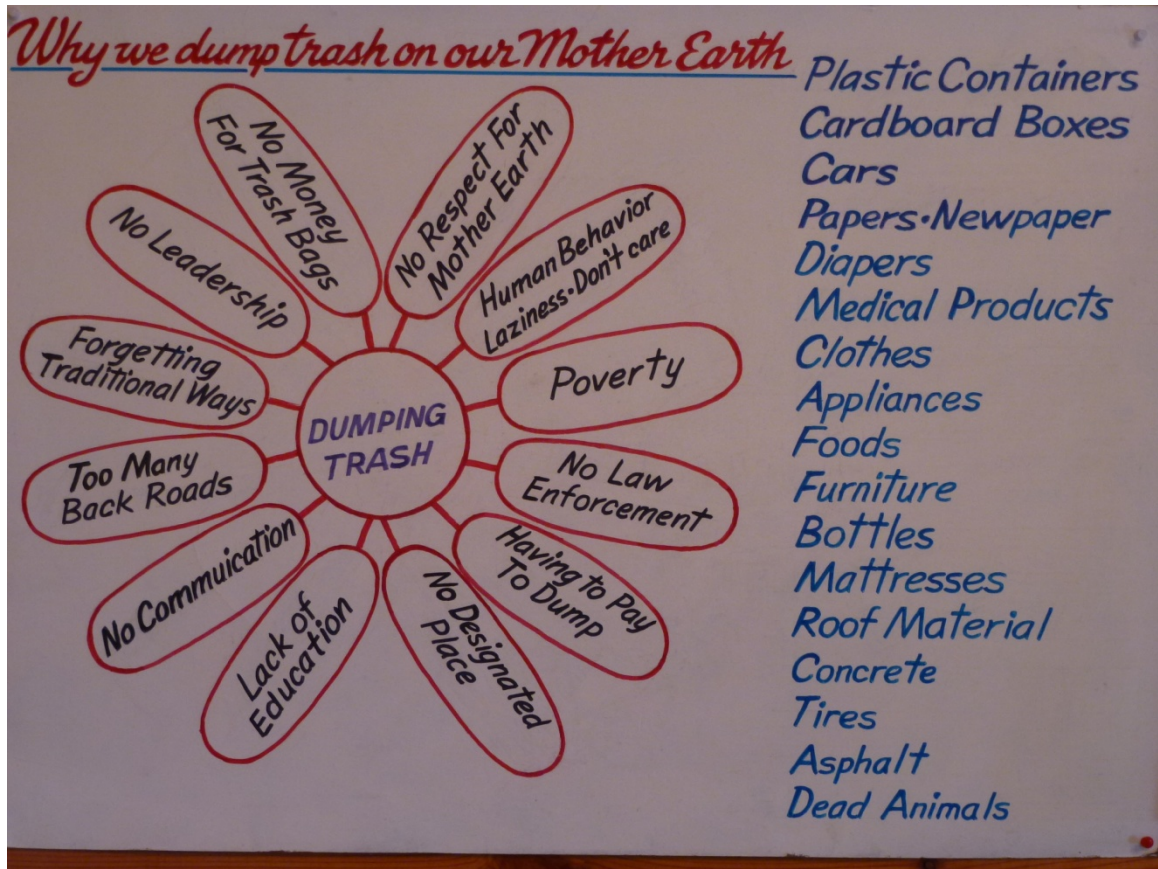 Why we dump trash on our Mother Earth
No Money
For Trash Bags
No Respect For
Mother Earth
Human Behavior
Laziness•Don't care
Poverty
No Law
Enforcement
Having to Pay
To Dump
No Designated
Place
Lack of
Education
No Commuication
Too Many
Back Roads
Forgetting
Traditional Ways
No Leadership
DUMPING
TRASH
Plastic Containers
Cardboard Boxes
Cars
Papers•Newpaper
Diapers
Medical Products
Clothes
Appliances
Foods
Furniture
Bottles
Mattresses
Roof Material
Concrete
Tires
Asphalt
Dead Animals